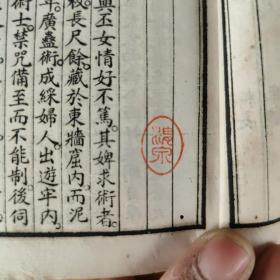 與丕女情好不篤其婢求術者
校長尺餘藏於東牆窟內而泥
年廣蠱術成綵婦人出遊宅內
術士禁咒備至而不能制後伺